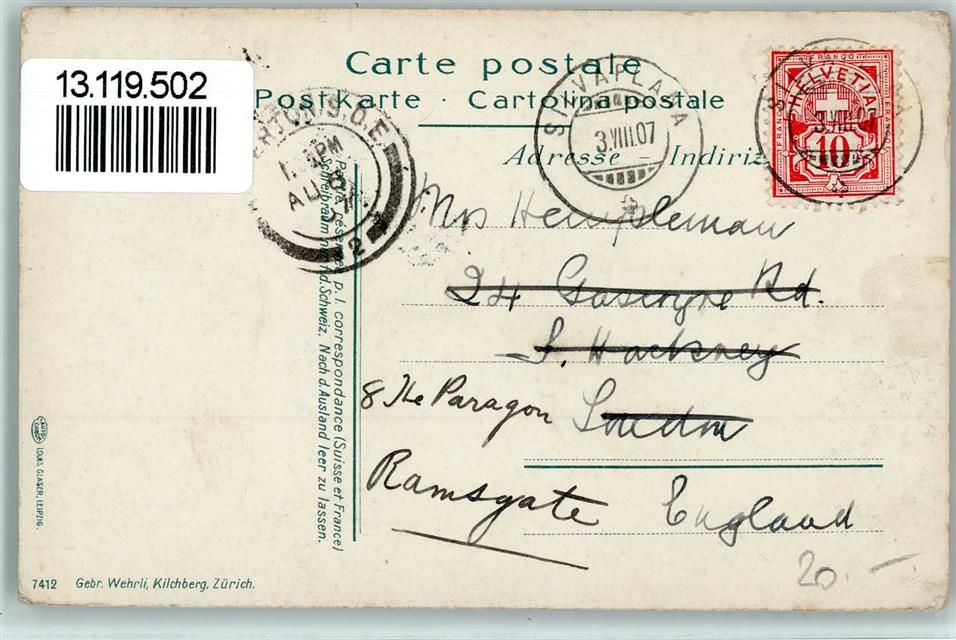 13.119.502
Carte postale
Postkarte · Cartolina postale
Adresse – Indiriz
SILVAPLANA
3.VIII.07
FRANCO
HELVETIA
10
3.VIII.07
ERTON S.O.E.
PM
AU
2
Mrs Hempleman
24 Gascoyne Rd.
S. Hackney
London
8 The Paragon
Ramsgate
England
p. l. correspondance (Suisse et France)
d. Schweiz. Nach d. Ausland leer zu lassen.
LOUIS GLASER, LEIPZIG.
7412 Gebr. Wehrli, Kilchberg, Zürich.
20.–